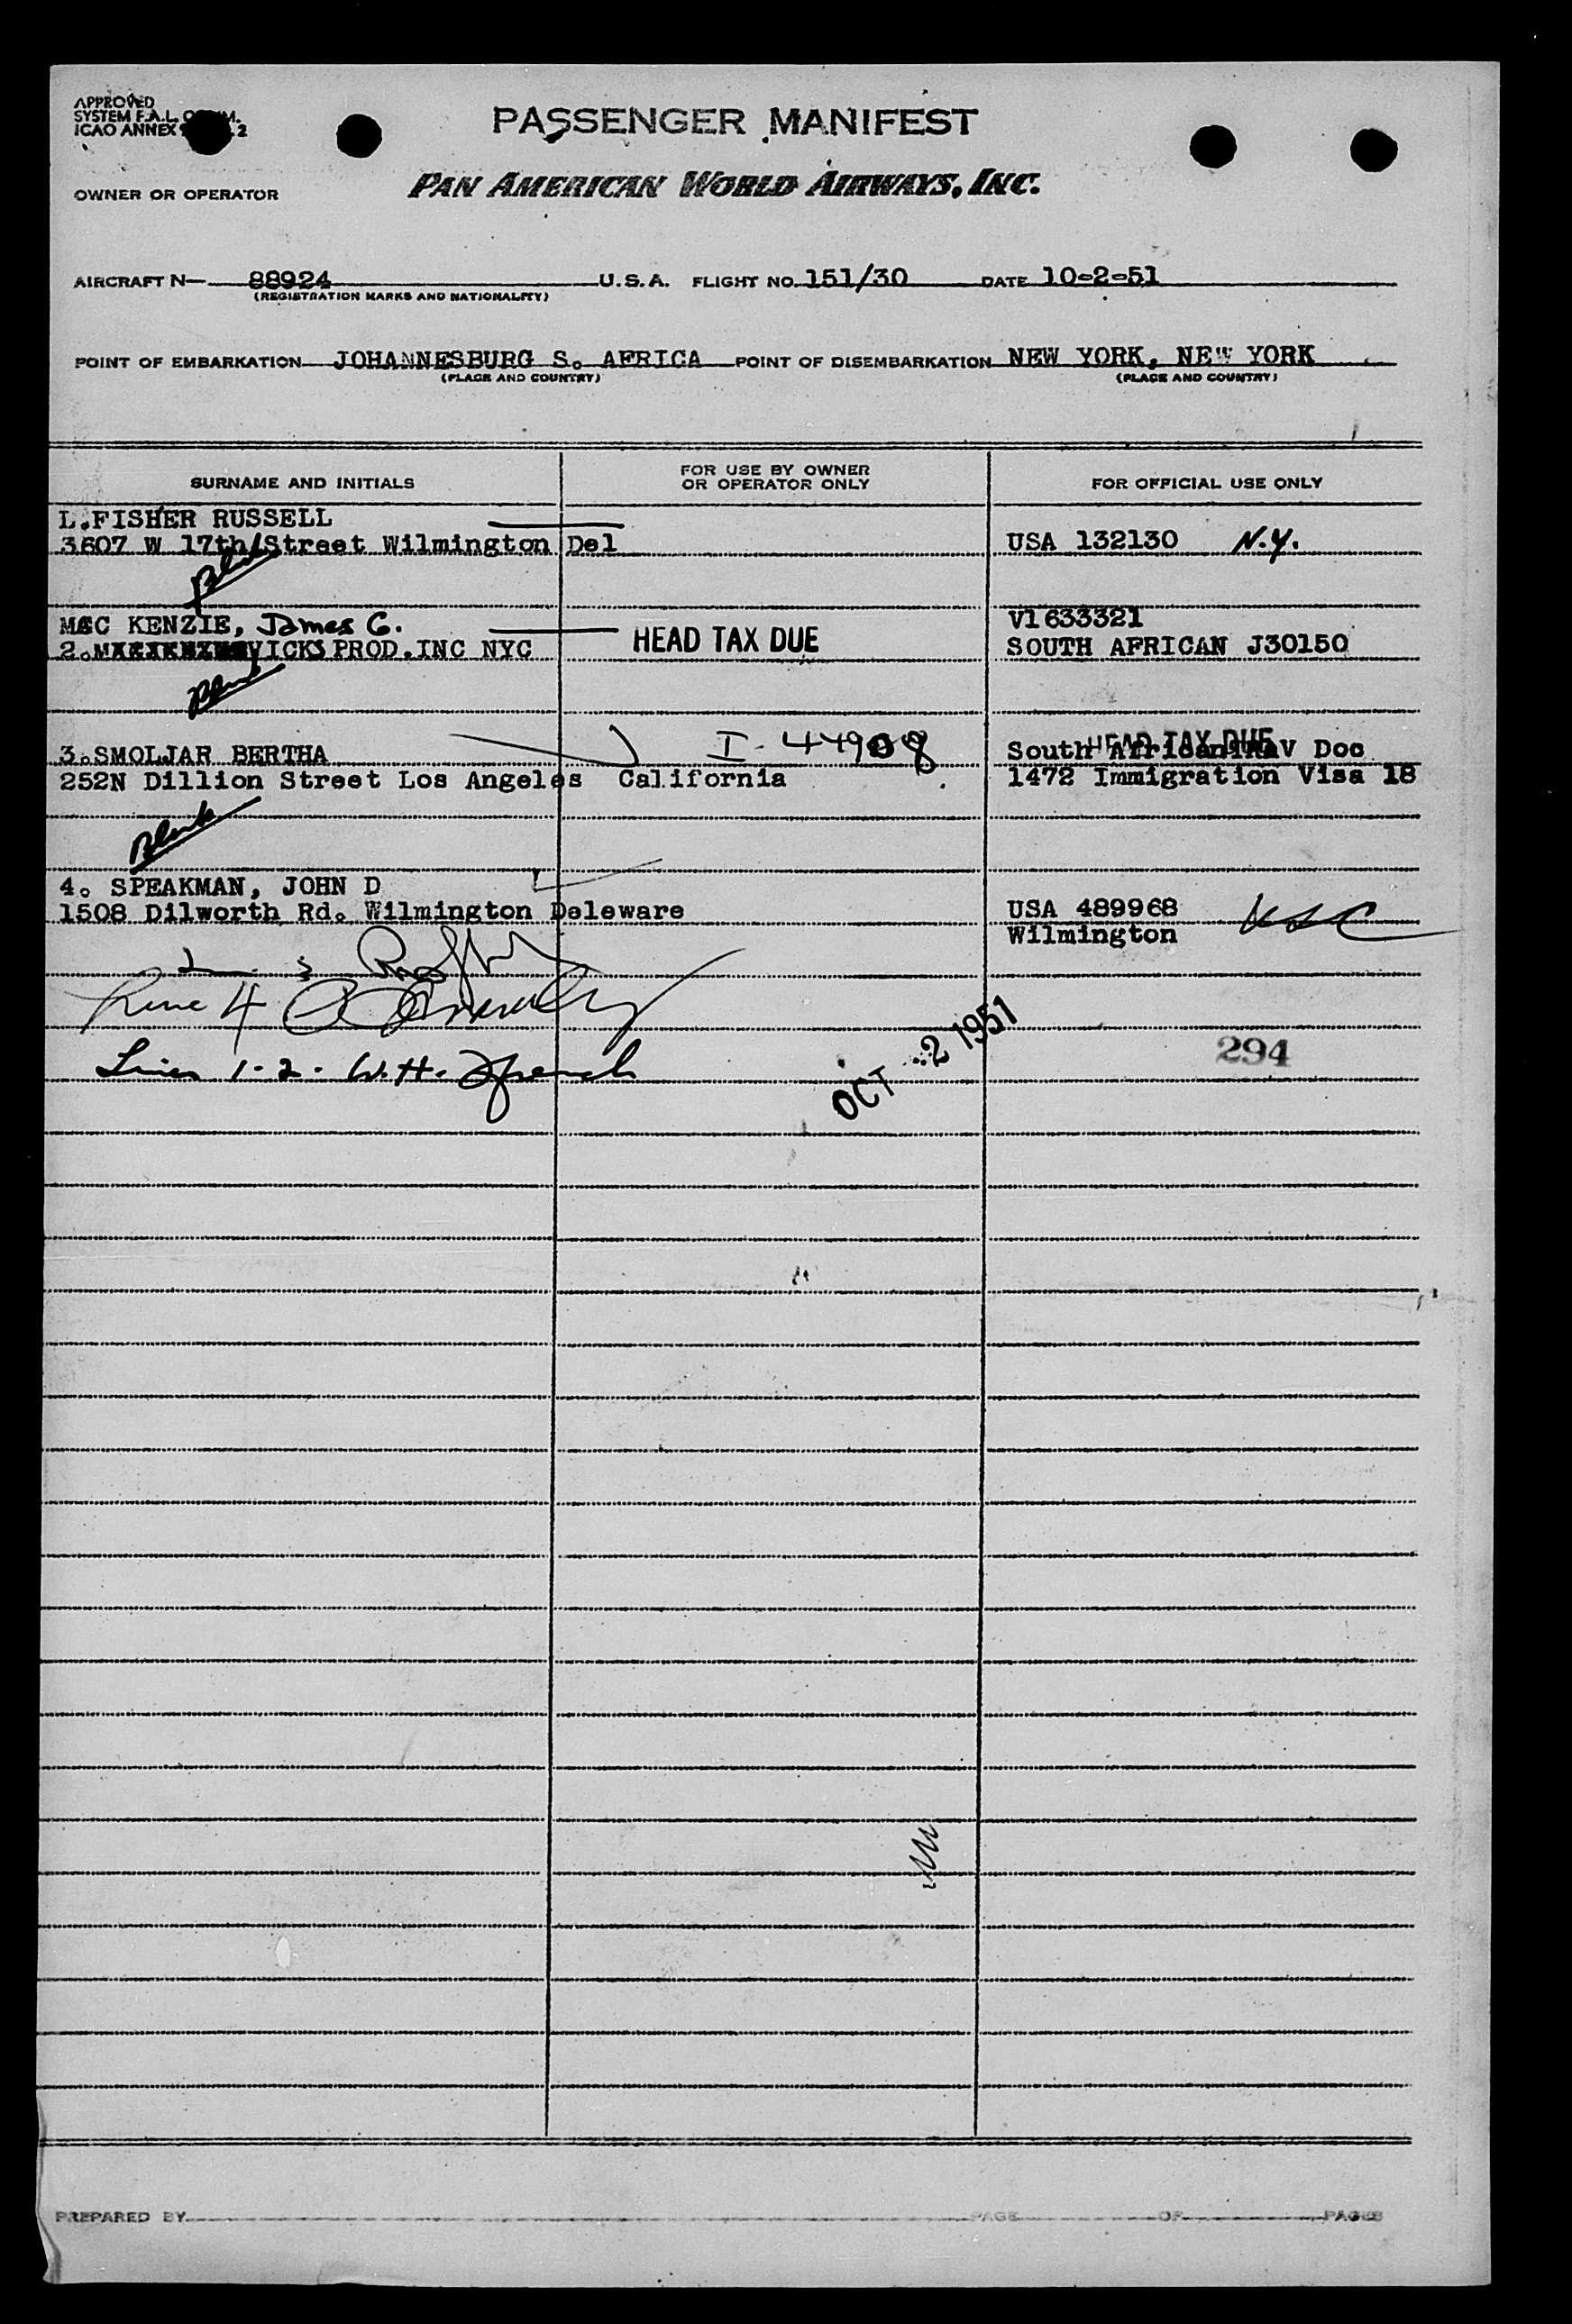 APPROVED
SYSTEM F.A.L.
ICAO ANNEX 2
PASSENGER MANIFEST
OWNER OR OPERATOR PAN AMERICAN WORLD AIRWAYS, INC.
AIRCRAFT N— 88924 U.S.A. FLIGHT NO. 151/30 DATE 10-2-51
(REGISTRATION MARKS AND NATIONALITY)
POINT OF EMBARKATION JOHANNESBURG S. AFRICA POINT OF DISEMBARKATION NEW YORK, NEW YORK
(PLACE AND COUNTRY) (PLACE AND COUNTRY)
SURNAME AND INITIALS FOR USE BY OWNER OR OPERATOR ONLY FOR OFFICIAL USE ONLY
L.FISHER RUSSELL
3607 W 17th Street Wilmington Del USA 132130 N.Y.
MAC KENZIE, James G. V1633321
2. VICKS PROD.INC NYC HEAD TAX DUE SOUTH AFRICAN J30150
I-44908 HEAD TAX DUE
3.SMOLJAR BERTHA South African Doc
252N Dillion Street Los Angeles California 1472 Immigration Visa 18
Blank
4. SPEAKMAN, JOHN D
1508 Dilworth Rd. Wilmington Deleware USA 489968 USC
Wilmington
Line 4
OCT -2 1951
294
Lines 1-2. W.H.
PREPARED BY PAGE OF PAGES